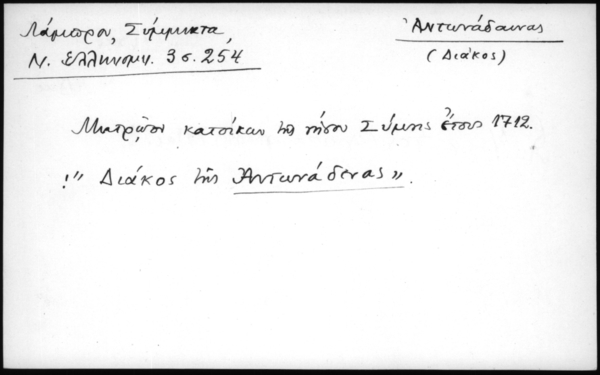 Λάμπρου, Σύμμικτα,
Ν. Ελληνομν. 3 σ. 254
Ἀντωνάδαινας
(Διάκος)
Μητρῷον κατοίκων τῆς νήσου Σύμης ἔτους 1712.
!" Διάκος τῆς Ἀντωνάδενας ".